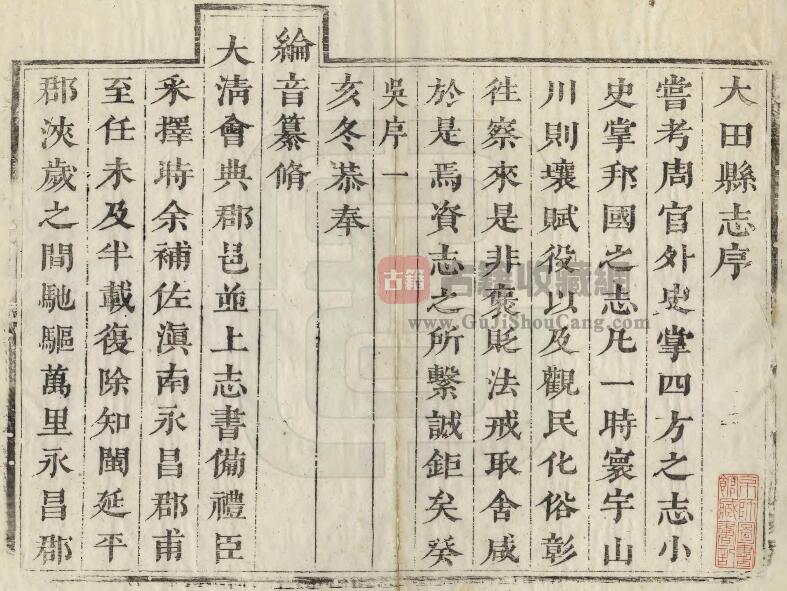 大田縣志序
嘗考周官外史掌四方之志小
史掌邦國之志凡一時寰宇山
川則壤賦役以及觀民化俗彰
徃察來是非褒貶法戒取舍咸
於是焉資志之所繫誠鉅矣癸
吳序 一
亥冬恭奉
綸音纂脩
大淸會典郡邑並上志書備禮臣
采擇時余補佐滇南永昌郡甫
至任未及半載復除知閩延平
郡浹歲之間馳驅萬里永昌郡
古籍
古籍收藏網
www.GuJiShouCang.com
京師圖書
館藏書記